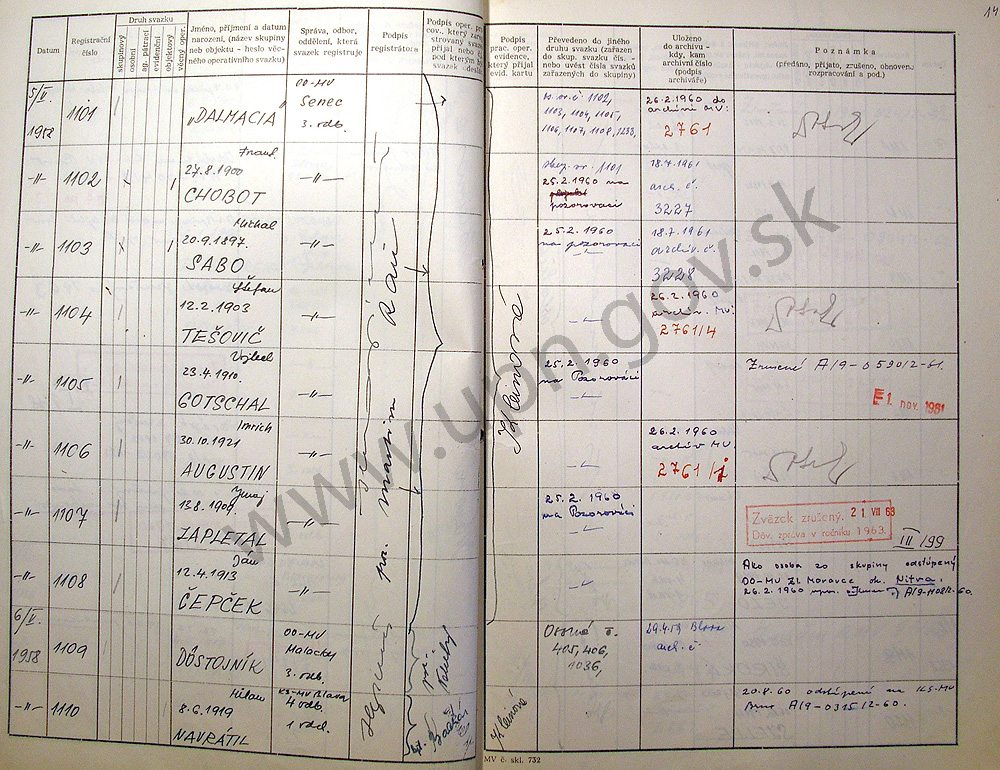 14
Datum
Registrační
číslo
Druh svazku
skupinový
osobní
ag. pátrací
evidenční
objektový
věcný oper.
Jméno, příjmení a datum
narození, (název skupiny
neb objektu - heslo věc-
ného operativního svazku)
Správa, odbor,
oddělení, která
svazek registruje
Podpis
registrátora
Podpis oper. pra-
cov., který za
strovaný svaz
přijal nebo
pod kterým
svazek
Podpis
prac. oper.
evidence,
který přijal
evid. kartu
Převedeno do jiného
druhu svazku (zařazen
do skup. svazku čís. -
nebo uvést čísla svazků
zařazených do skupiny)
Uloženo
do archivu -
kdy, kam
archivní číslo
(podpis
archiváře)
Poznámka
(předáno, přijato, zrušeno, obnoveno
rozpracování a pod.)
5/V.
1958
1101
"DALMACIA"
OO-MV
Senec
3. odb.
1102,
1103, 1104, 1105,
1106, 1107, 1108, 1233,
26.2.1960 do
archívu MV:
2761
-"- 1102
27.8.1900
CHOBOT
-"-
1101
25.2.1960 na
pozorovací
18.7.1961
arch. č.
3227
-"- 1103
Michal
20.9.1897
SABO
-"-
25.2.1960
na pozorovací
18.7.1961
archív. č.
3228
-"- 1104
Štefan
12.2.1903
TEŠOVIČ
-"-
-"-
26.2.1960
archív. MV:
2761/4
-"- 1105
Vojtech
23.4.1910
GOTSCHAL
-"-
25.2.1960
na Pozorovací
-"-
Zrusené A/9-05901/2-61.
1. nov. 1961
-"- 1106
Imrich
30.10.1921
AUGUSTIN
-"-
-"-
26.2.1960
archív MV.
2761/i
-"- 1107
Juraj
13.8.1900
ZAPLETAL
-"-
25.2.1960
na Pozorovací
-"-
Zväzok zrušený. 21 VIII 63
Dôv. zpráva v ročníku 1963.
III/99
-"- 1108
Ján
12.4.1913
ČEPČEK
-"-
-"-
Ako osoba zo skupiny odstúpený
OO-MV Zl. Moravce ok. Nitra.
26.2.1960
6/V.
1958
1109
DÔSTOJNÍK
OO-MV
Malacky
3. odb.
Osobné
405, 406,
1036,
29.4.59 Blava
arch. č
-"- 1110
Milan
8.6.1919
NAVRÁTIL
KS-MV Blava
4 odb.
1 odd.
Kleinová
20.8.60 odstúpené na KS-MV
Brno A/9-0315/2-60.
MV č. skl. 732
www.upn.gov.sk